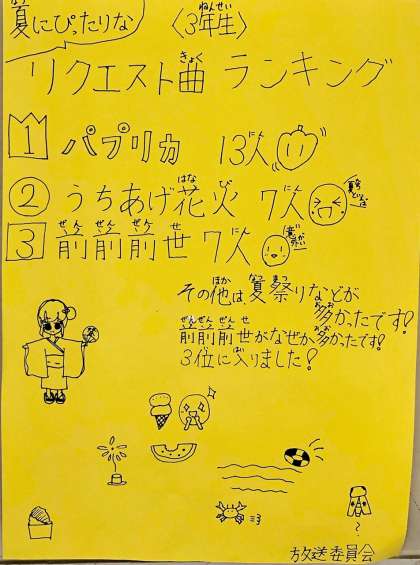 夏にぴったりな 〈3年生〉
リクエスト曲 ランキング
1 パプリカ 13人
② うちあげ花火 7人
3 前前前世 7人
その他は、夏祭りなどが
多かったです!
前前前世がなぜか多かったです!
3位に入りました!
放送委員会